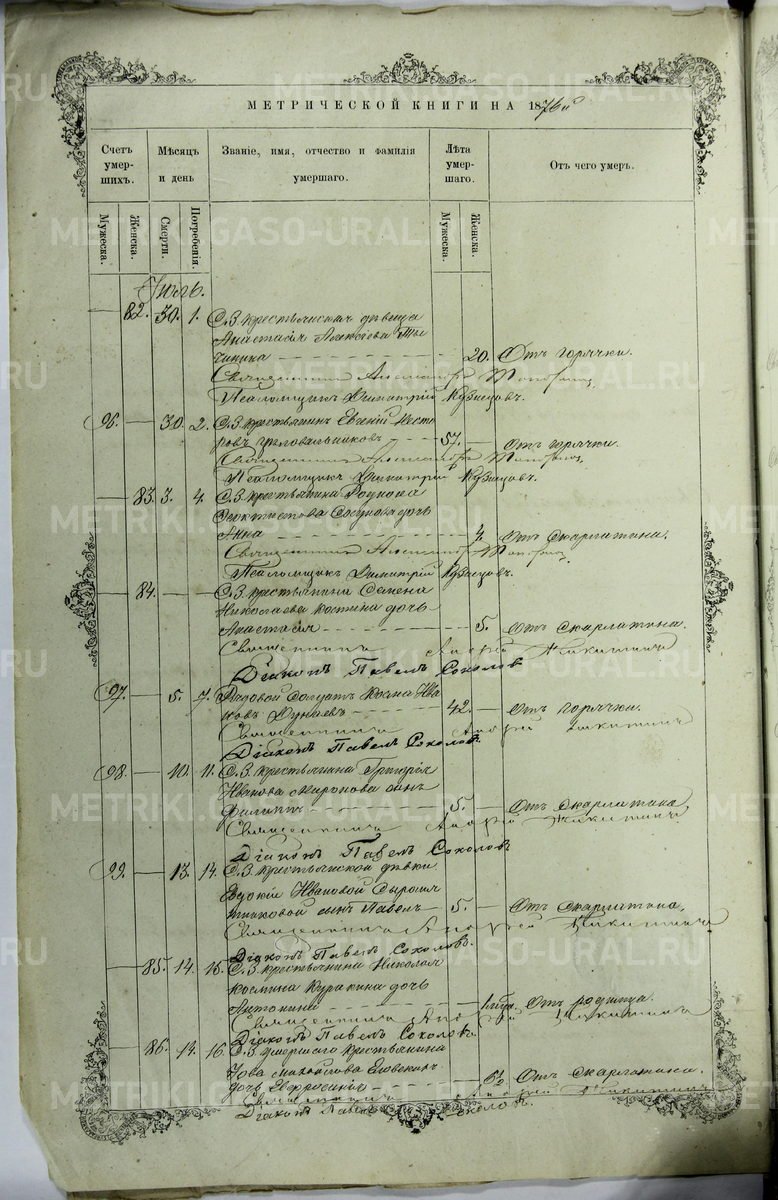 МЕТРИЧЕСКОЙ КНИГИ НА 1876 й
Счетъ умерших.
Мѣсяцъ и день
Званіе, имя, отчество и фамилія умершаго.
Лѣта умершаго.
Отъ чего умеръ.
Мужеска.
Женска.
Смерти.
Погребенія.
Мужеска.
Женска.
82. 30. 1. С.З. крестьянская дѣвица
Анастасія Алексѣева
20. Отъ горячки.
Священникъ Александръ
Псаломщикъ Димитрій Кузнецовъ.
96. — 30. 2. С.З. крестьянинъ Евгеній Несте
ровъ 57. — Отъ горячки.
Священникъ Александръ
Псаломщикъ Димитрій Кузнецовъ.
83. 3. 4. С.З. крестьянина Родиона
Феоктистова дочь
Анна 4. Отъ скарлатина.
Священникъ Александръ
Псаломщикъ Димитрій Кузнецовъ.
84. — — С.З. крестьянина Семена
Николаева Костина дочь
Анастасія 5. Отъ скарлатина.
Священникъ Андрей Никитинъ
Діаконъ Павелъ Соколовъ
97. — 5. 7. Рядовой солдатъ Косма Ива
ковъ Дунаевъ 42. — Отъ горячки.
Священникъ Андрей Никитинъ
Діаконъ Павелъ Соколовъ.
98. — 10. 11. С.З. крестьянина Григорія
Иванова Миронова сынъ
Филиппъ 5. — Отъ скарлатина
Священникъ Андрей Никитинъ
Діаконъ Павелъ Соколовъ
99. — 13. 14. С.З. крестьянской дѣвки
Евдокіи Ивановой Сыромят
никовой сынъ Павелъ 5. — Отъ скарлатина.
Священникъ Андрей Никитинъ
Діаконъ Павелъ Соколовъ.
85. 14. 16. С.З. крестьянина Николая
Космина Куракина дочь
Антонина Отъ родимца.
Священникъ Андрей Никитинъ
Діаконъ Павелъ Соколовъ.
86. 14. 16. С.З. умершаго крестьянина
Іова Михайлова дочь Евфросинія Отъ скарлатина.
Священникъ Андрей Никитинъ
Діаконъ Павелъ Соколовъ.
METRIKI.GASO-URAL.RU